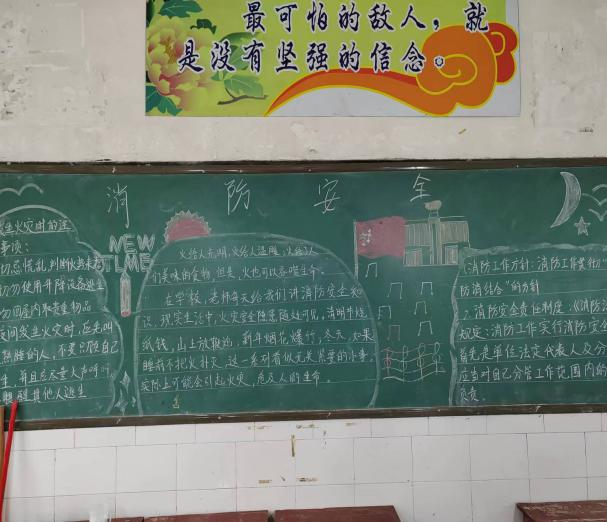 最可怕的敌人，就
是没有坚强的信念。
消防安全
发生火灾时的注
事项：
NEW
TIME
火给人光明，火给人温暖，火给人
们美味的食物，但是，火也可以吞噬生命。
在学校，老师每天给我们讲消防安全知
识，现实生活中，火灾安全隐患随处可见，清明节烧
纸钱，山上放鞭炮，新年烟花爆竹，冬天，如果
睡前不把火扑灭，这一系列看似无关紧要的小事，
实际上可能会引起火灾，危及人的生命。
切勿使用升降设备逃生
夜间发生火灾时，应先叫
熟睡的人，不要只顾自己
生，并且尽量大声喊叫
醒其他人逃生
消防工作方针：消防工作贯彻“
防消结合”的方针
2.消防安全责任制度：《消防法
规定：消防工作实行消防安全
首先是单位法定代表人及分
应当对自己分管工作范围内的
负责